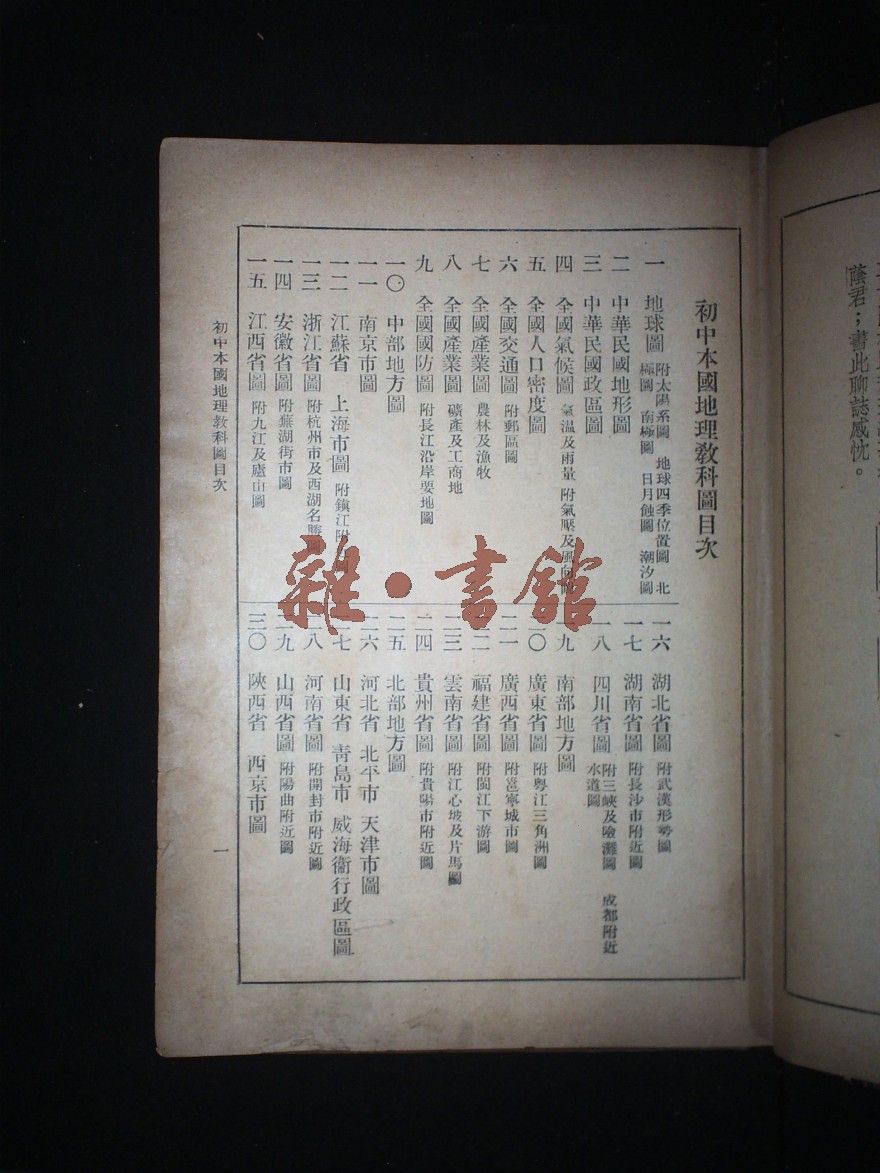 蔭君；書此聊誌感忱。
初中本國地理教科圖目次
一 地球圖 附太陽系圖 地球四季位置圖 北極圖 南極圖 日月蝕圖 潮汐圖
二 中華民國地形圖
三 中華民國政區圖
四 全國氣候圖 氣温及雨量 附氣壓及風向
五 全國人口密度圖
六 全國交通圖 附郵區圖
七 全國產業圖 農林及漁牧
八 全國產業圖 礦產及工商地
九 全國國防圖 附長江沿岸要地圖
一〇 中部地方圖
一一 南京市圖
一二 江蘇省 上海市圖 附鎮江附
一三 浙江省圖 附杭州市及西湖名勝
一四 安徽省圖 附蕪湖街市圖
一五 江西省圖 附九江及廬山圖
一六 湖北省圖 附武漢形勢圖
一七 湖南省圖 附長沙市附近圖
一八 四川省圖 附三峽及險灘圖 成都附近水道圖
一九 南部地方圖
二〇 廣東省圖 附粵江三角洲圖
二一 廣西省圖 附邕寧城市圖
二二 福建省圖 附閩江下游圖
二三 雲南省圖 附江心坡及片馬圖
二四 貴州省圖 附貴陽市附近圖
二五 北部地方圖
二六 河北省 北平市 天津市圖
二七 山東省 青島市 威海衞行政區圖
二八 河南省圖 附開封市附近圖
二九 山西省圖 附陽曲附近圖
三〇 陝西省 西京市圖
初中本國地理教科圖目次
一
雜·書館